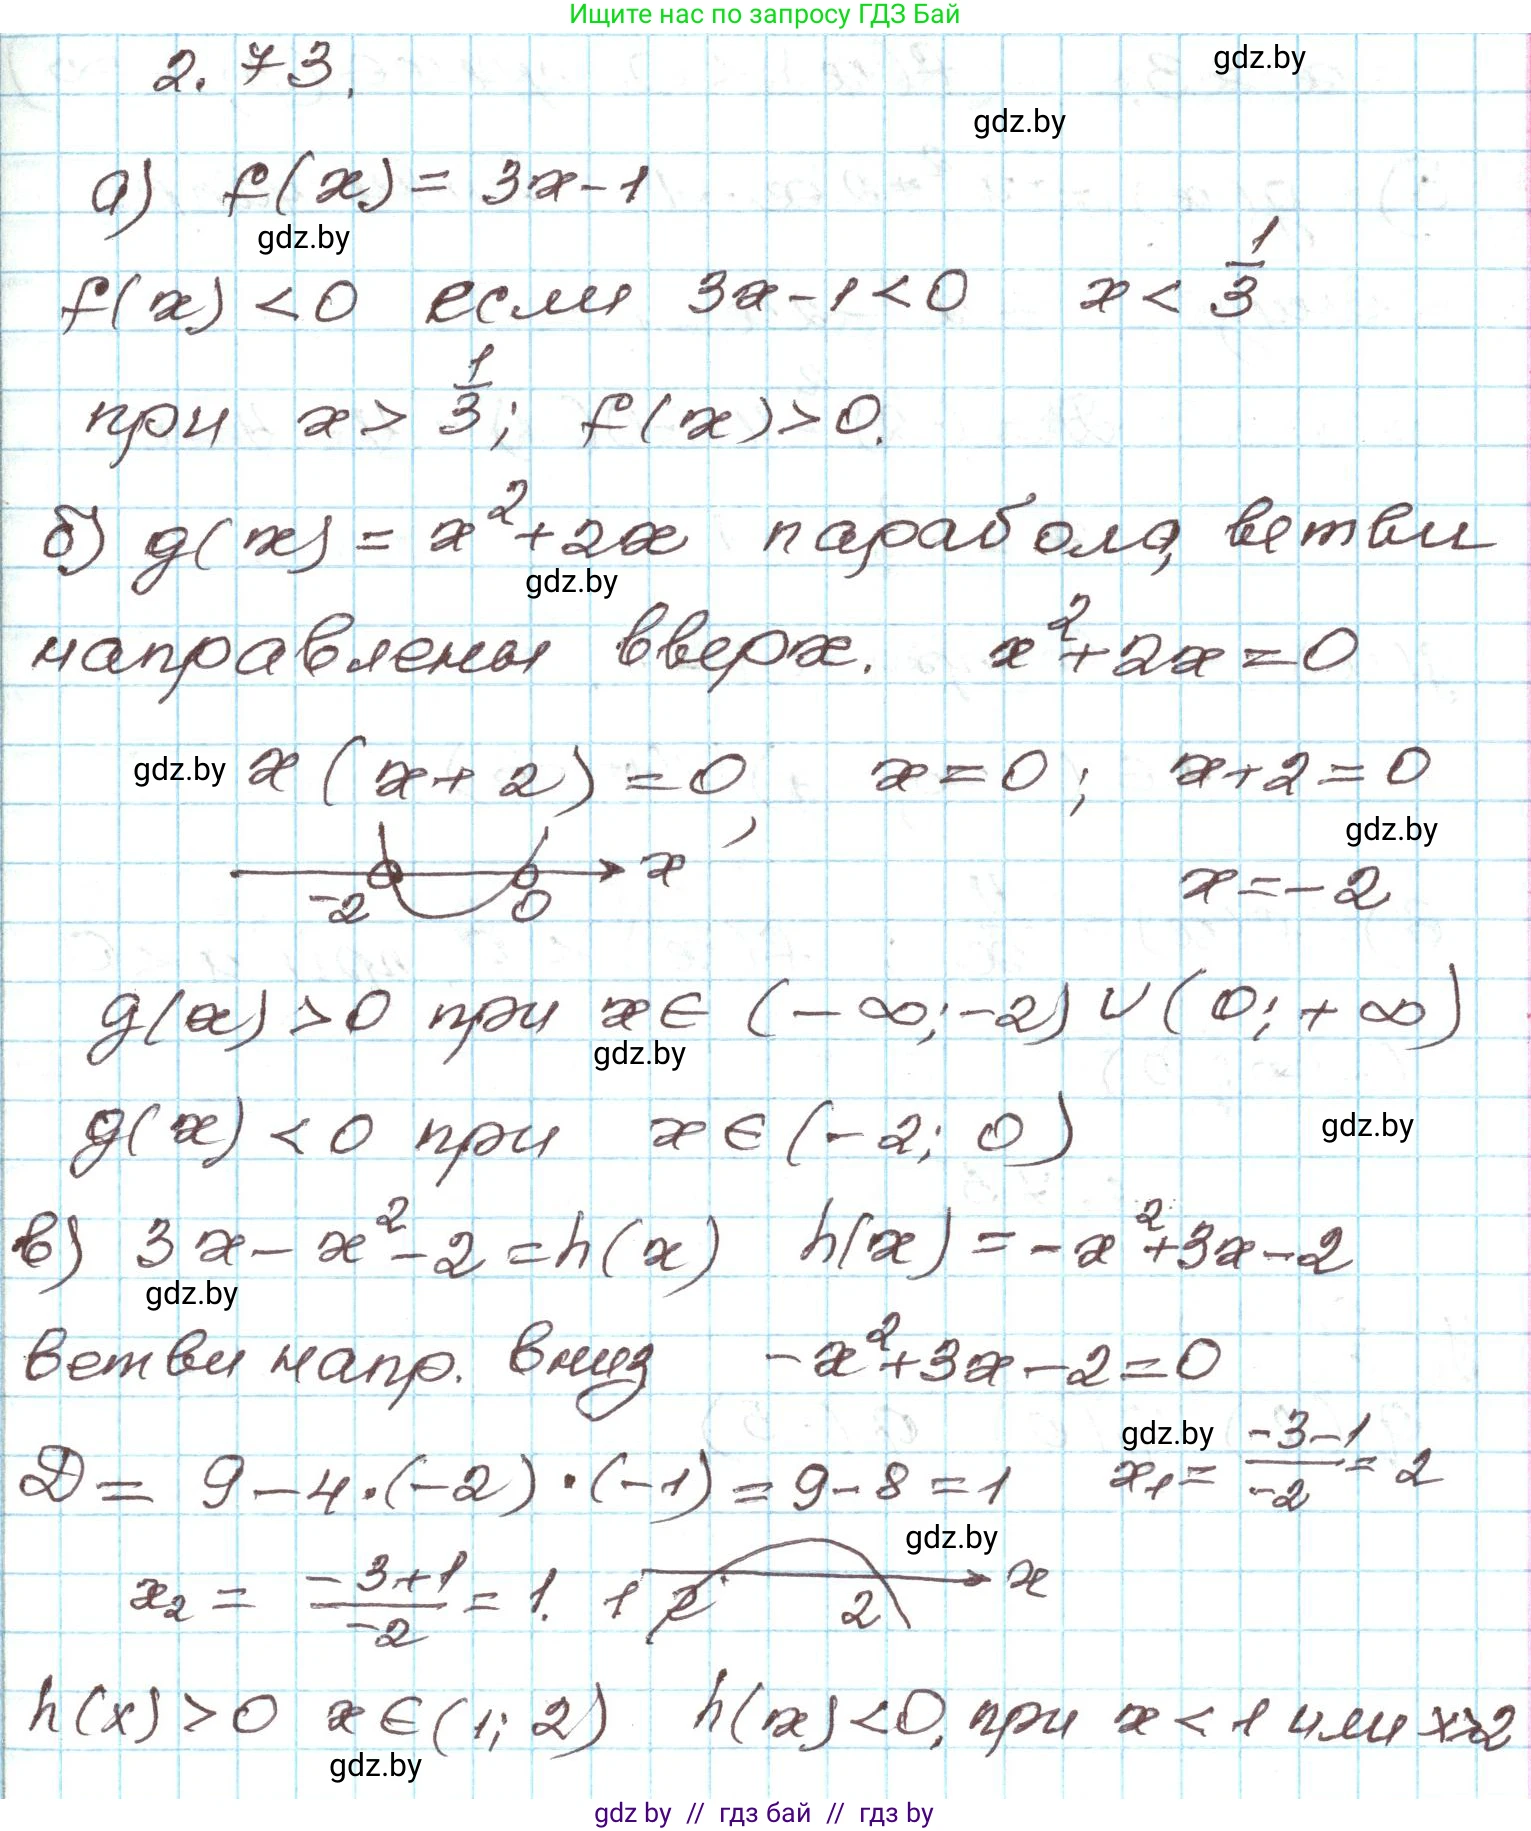 Ищите нас по запросу ГДЗ Бай
2.73.
gdz.by
gdz.by
а) f(x) = 3x-1
gdz.by
f(x) < 0 если 3x-1<0 x < 1/3
при x > 1/3; f(x) > 0.
б) g(x) = x²+2x парабола, ветви
gdz.by
направлены вверх. x²+2x=0
gdz.by x(x+2)=0, x=0; x+2=0
gdz.by
-2 0 x x=-2
g(x) > 0 при x∈(-∞;-2)∪(0;+∞)
gdz.by
g(x) < 0 при x∈(-2; 0)
gdz.by
в) 3x-x²-2=h(x) h(x)=-x²+3x-2
gdz.by
ветви напр. вниз -x²+3x-2=0
gdz.by
D = 9-4·(-2)·(-1)=9-8=1 x₁ = (-3-1)/(-2) = 2
gdz.by
x₂ = (-3+1)/(-2) = 1. 1 2 x
h(x)>0 x∈(1; 2) h(x)<0, при x<1 или x>2
gdz.by
gdz by // гдз бай // гдз by